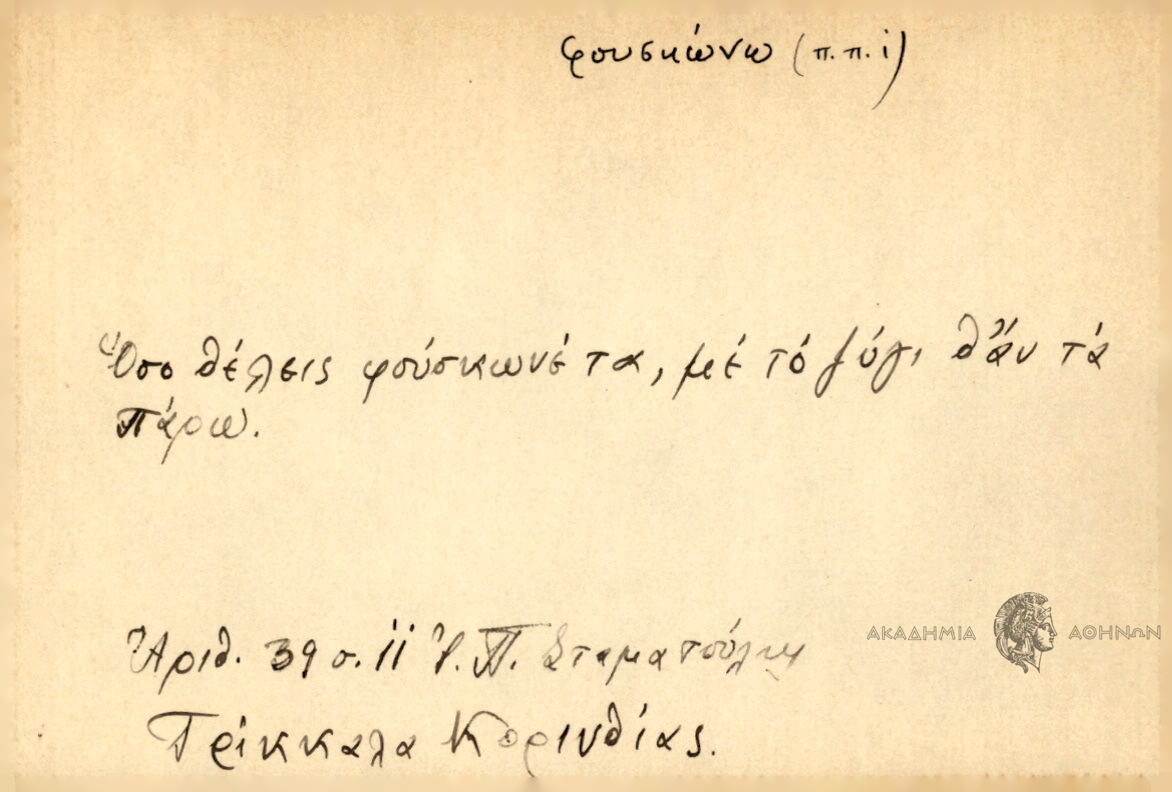 φουσκώνω (π.π. i)
Ὅσο θέλεις φούσκωνέ τα, μέ τό ζύγι θἄν τά
πάρω.
Ἀριθ. 39 σ. 11 Ἰ. Π. Σταματούλη
Τρίκκαλα Κορινθίας.
ΑΚΑΔΗΜΙΑ ΑΘΗΝΩΝ